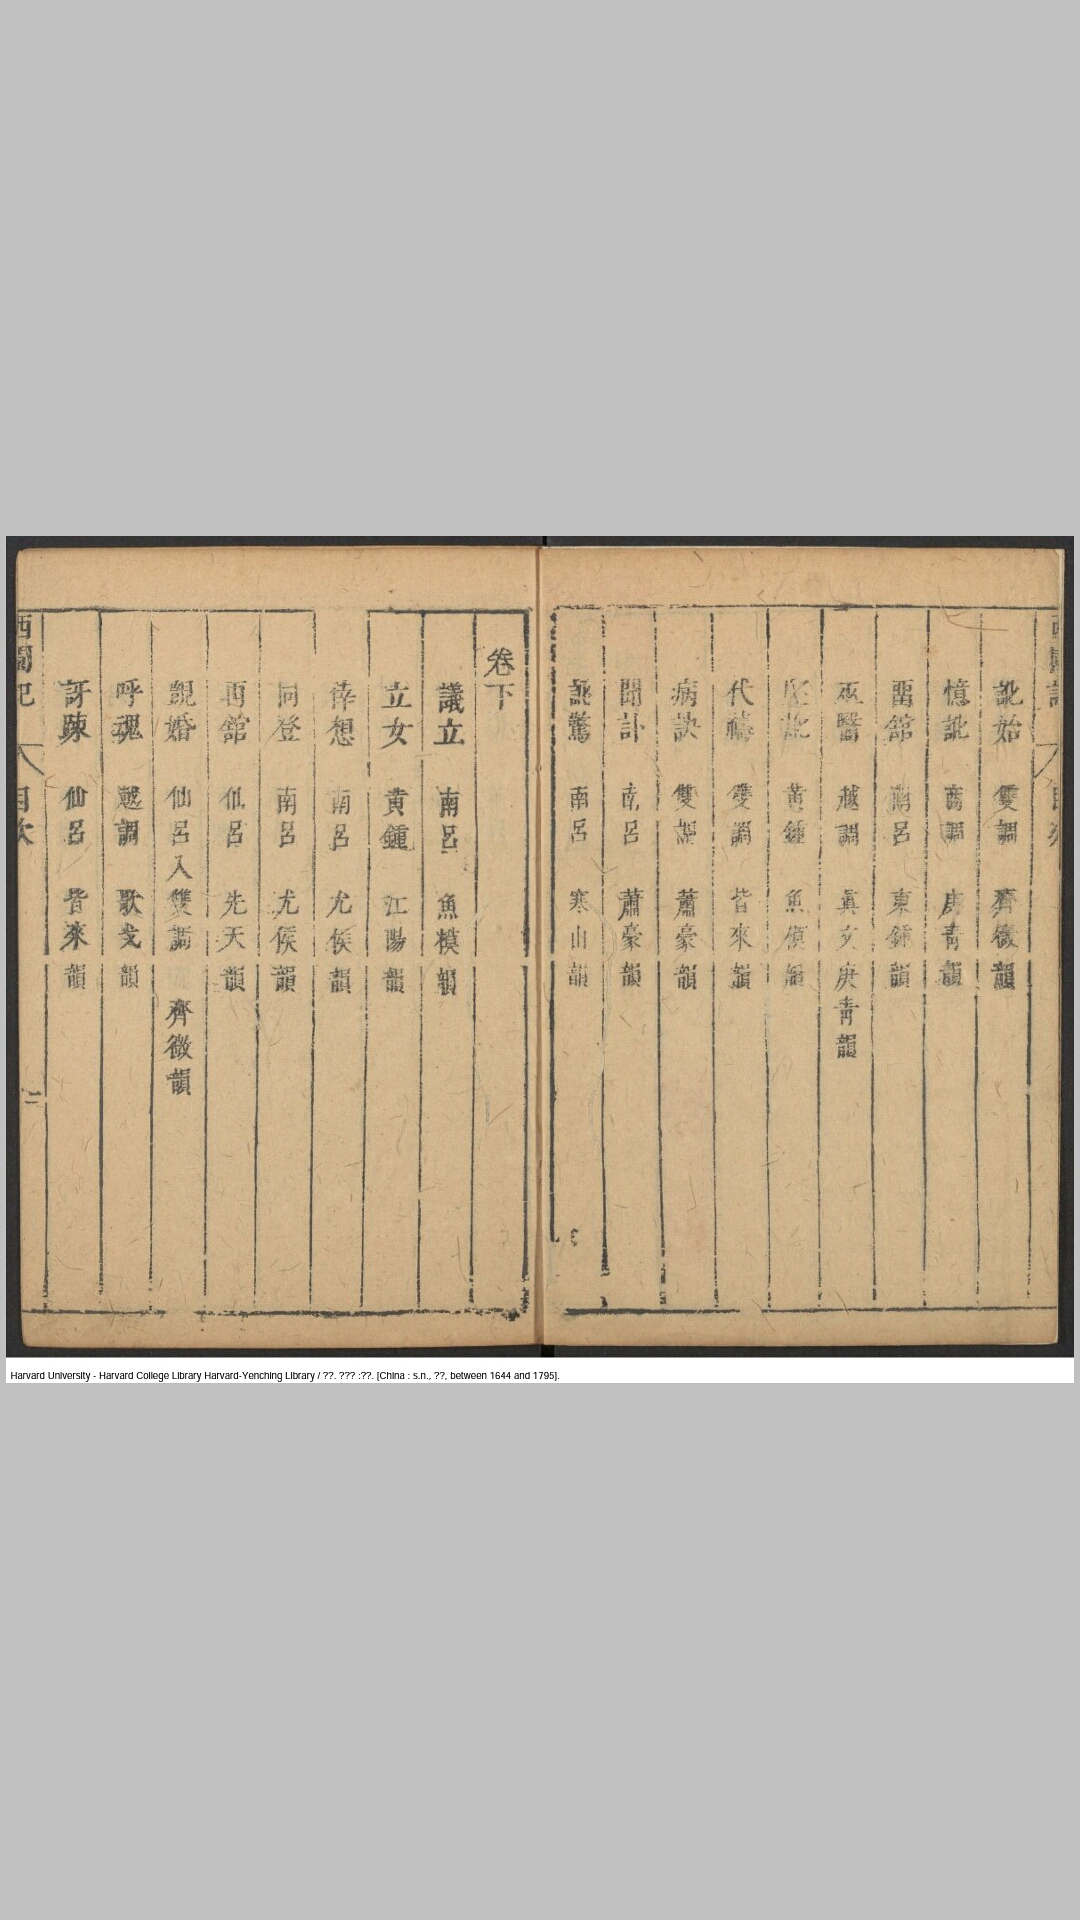 訛始 雙調 齊微韻
憶訛 商調 庚青韻
畱舘 南呂 東鍾韻
巫醫 越調 眞文庚青韻
訛 黃鍾 魚模韻
代禱 雙調 皆來韻
病訣 雙調 蕭豪韻
聞訃 南呂 蕭豪韻
訛驚 南呂 寒山韻
卷下
議立 南呂 魚模韻
立女 黃鍾 江陽韻
倖想 南呂 尤侯韻
同登 南呂 尤侯韻
再舘 仙呂 先天韻
覬婚 仙呂入雙調 齊微韻
呼魂 越調 歌戈韻
訝疎 仙呂 皆來韻
西園記 目次 二
Harvard University - Harvard College Library Harvard-Yenching Library / ??. ??? :??. [China : s.n., ??, between 1644 and 1795].